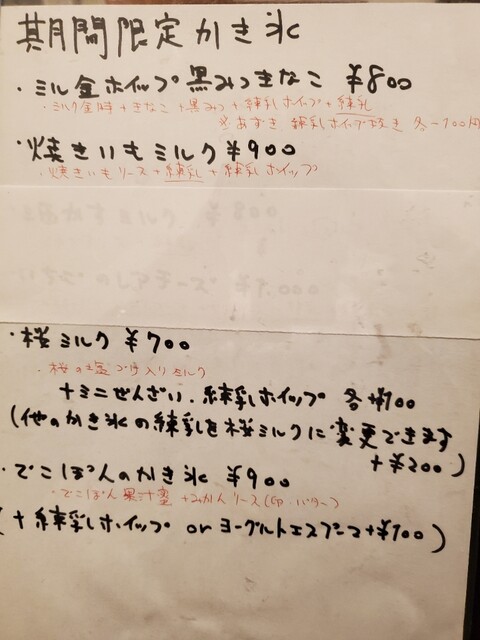 期間限定かき氷
・ミル金ホイップ黒みつきなこ ¥800
・ミルク金時+きなこ+黒みつ+練乳ホイップ+練乳
※あずき 練乳ホイップ抜き 各-100円
・焼きいもミルク ¥900
・焼きいもソース+練乳+練乳ホイップ
・桜ミルク ¥700
・桜の塩づけ入りミルク
+ミニぜんざい・練乳ホイップ 各¥100
(他のかき氷の練乳を桜ミルクに変更できます
+¥200)
・でこぽんのかき氷 ¥900
・でこぽん果汁蜜+みかんソース(卵・バター)
(+練乳ホイップ or ヨーグルトエスプーマ+¥100)